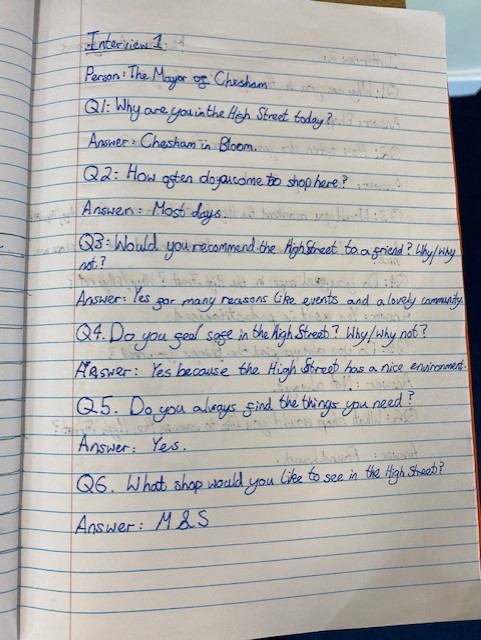 Interview 1
Person: The Mayor of Chesham
Q1: Why are you in the High Street today?
Answer: Chesham in Bloom.
Q2: How often do you come to shop here?
Answer: Most days.
Q3: Would you recommend the High Street to a friend? Why/why
not?
Answer: Yes for many reasons like events and a lovely community.
Q4. Do you feel safe in the High Street? Why/why not?
Answer: Yes because the High Street has a nice environment.
Q5. Do you always find the things you need?
Answer: Yes.
Q6. What shop would you like to see in the High Street?
Answer: M&S